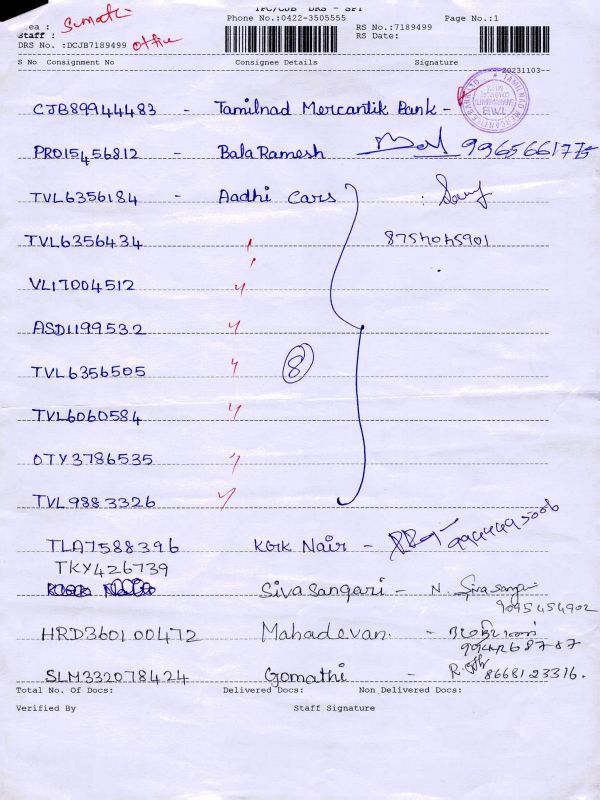 TPC/CJB DRS - SPT
Area : Sumathi
Phone No.:0422-3505555 RS No.:7189499 Page No.:1
Staff : office RS Date:
DRS No. :DCJB7189499
S No Consignment No Consignee Details Signature 20231103--
CJB89944483 - Tamilnad Mercantik Bank -
TAMILNAD MERCANTILE BANK LTD
PRO15456812 - Bala Ramesh 9965661775
TVL6356184 - Aadhi Cars
TVL6356434 " 8754045901
VL17004512 "
ASD1199532 "
TVL6356505 " 8
TVL6060584 "
OTY3786535 "
TVL9883326 "
TLA7588396 Kork Nair - 9944495006
TKY426739
SivaSangari - N. Sivasangari
9095454902
HRD360100472 Mahadevan - மகாதேவன்
9944268787
SLM332078424 Gomathi - 8668123316.
Total No. Of Docs: Delivered Docs: Non Delivered Docs:
Verified By Staff Signature